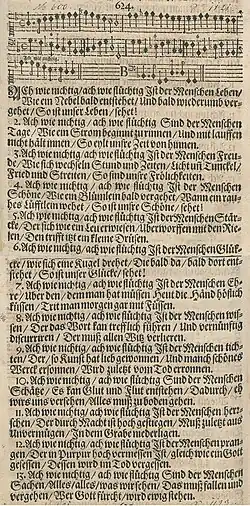 624.
B
Ach wie nichtig/ach wie flüchtig Ist der Menschen Leben/
Wie ein Nebel bald entstehet/Und bald wiederumb ver-
gehet/So ist unser Leben/sehet!
2. Ach wie nichtig/ach wie flüchtig Sind der Menschen
Tage/Wie ein Strom beginnt zu rinnen/Und mit lauffen
nicht hält innen/So eylt unser Zeit von hinnen.
3. Ach wie nichtig/ach wie flüchtig Ist der Menschen Freu-
de/Wie sich wechseln Stund und Zeiten/Licht und Tunckel/
Fried und Streiten/So sind unsre Fröligkeiten.
4. Ach wie nichtig/ach wie flüchtig Ist der Menschen
Schöne/Wie ein Blümlein bald vergehet/Wann ein rau-
hes Lüfftlein wehet/So ist unsre Schöne/sehet!
5. Ach wie nichtig/ach wie flüchtig Ist der Menschen Stär-
cke/Der sich wie ein Leu erwiesen/Uberworffen mit den Rie-
sen/Den trifft itzt ein kleine Drüsen.
6. Ach wie nichtig/ach wie flüchtig Ist der Menschen Glü-
cke/wie sich eine Kugel drehet/Die bald da/bald dort ent-
stehet/So ist unser Glücke/sehet!
7. Ach wie nichtig/ach wie flüchtig Ist der Menschen Eh-
re/Uber den/dem man hat müssen/Heut die Händ höflich
küssen/Tritt man morgen gar mit Füssen.
8. Ach wie nichtig/ach wie flüchtig Ist der Menschen wis-
sen/Der das Wort kan trefflich führen/Und vernünftig
discuriren/Der muß allen Witz verlieren.
9. Ach wie nichtig/ach wie flüchtig Ist der Menschen tich-
ten/Der/so Kunst hat lieb gewonnen/Und manch schönes
Werck ersonnen/Wird zuletzt vom Tod erronnen.
10. Ach wie nichtig/ach wie flüchtig Sind der Menschen
Schätze/Es kan Glut und Flut entstehen/Dadurch/eh
wirs uns versehen/Alles muß zu boden gehen.
11. Ach wie nichtig/ach wie flüchtig Ist der Menschen herr-
schen/Der durch Macht ist hoch gestiegen/Muß zuletzt aus
Unvermügen/In dem Grabe niederligen.
12. Ach wie nichtig/ach wie flüchtig Ist der Menschen pran-
gen/Der in Purpur hoch vermessen Ist/gleich wie ein Gott
gesessen/Dessen wird im Tod vergessen.
13. Ach wie nichtig/ach wie flüchtig Sind der Menschen
Sachen/Alles/alles/was wir sehen/Das muß fallen und
vergehen/Wer Gott fürcht/wird ewig stehen.